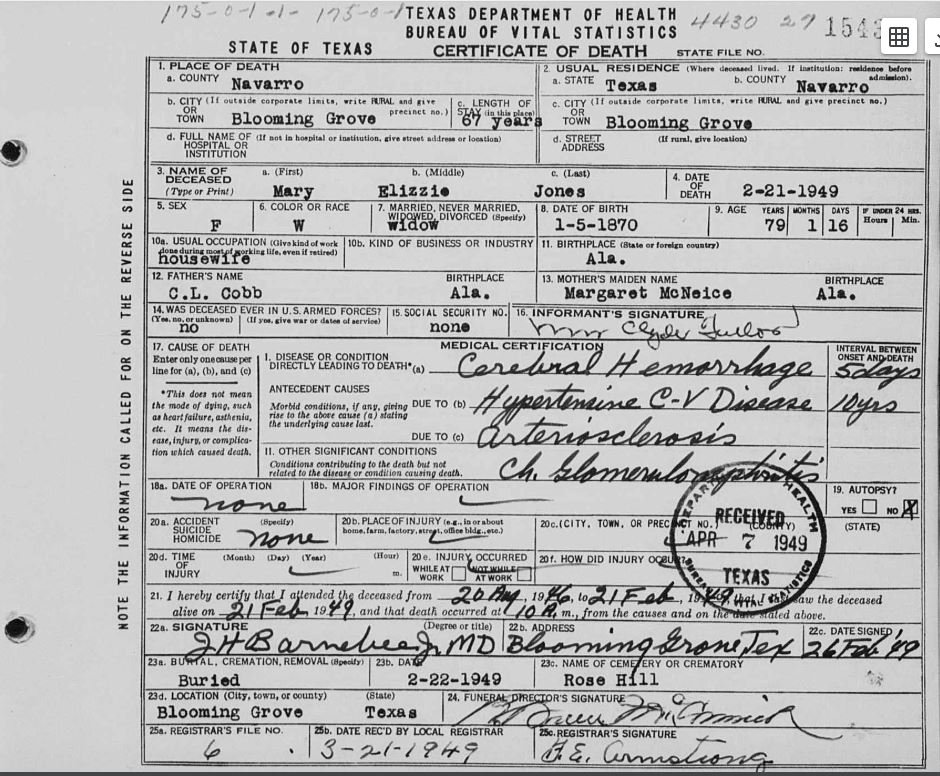 175-0-1-1- 175-0-1 TEXAS DEPARTMENT OF HEALTH 4430 27 1543
BUREAU OF VITAL STATISTICS
STATE OF TEXAS CERTIFICATE OF DEATH STATE FILE NO.
NOTE THE INFORMATION CALLED FOR ON THE REVERSE SIDE
1. PLACE OF DEATH
a. COUNTY Navarro
2. USUAL RESIDENCE (Where deceased lived. If institution: residence before admission).
a. STATE Texas b. COUNTY Navarro
b. CITY (If outside corporate limits, write RURAL and give precinct no.)
OR
TOWN Blooming Grove
c. LENGTH OF
STAY (in this place)
67 years
c. CITY (If outside corporate limits, write RURAL and give precinct no.)
OR
TOWN Blooming Grove
d. FULL NAME OF (If not in hospital or institution, give street address or location)
HOSPITAL OR
INSTITUTION
d. STREET (If rural, give location)
ADDRESS
3. NAME OF DECEASED
(Type or Print)
a. (First) b. (Middle) c. (Last)
Mary Elizzie Jones
4. DATE OF DEATH 2-21-1949
5. SEX
F
6. COLOR OR RACE
W
7. MARRIED, NEVER MARRIED,
WIDOWED, DIVORCED (Specify)
widow
8. DATE OF BIRTH
1-5-1870
9. AGE YEARS MONTHS DAYS IF UNDER 24 HRS.
Hours Min.
79 1 16
10a. USUAL OCCUPATION (Give kind of work
done during most of working life, even if retired)
housewife
10b. KIND OF BUSINESS OR INDUSTRY
11. BIRTHPLACE (State or foreign country)
Ala.
12. FATHER'S NAME BIRTHPLACE
C.L. Cobb Ala.
13. MOTHER'S MAIDEN NAME BIRTHPLACE
Margaret McNeice Ala.
14. WAS DECEASED EVER IN U.S. ARMED FORCES?
(Yes, no, or unknown) (If yes, give war or dates of service)
no
15. SOCIAL SECURITY NO.
none
16. INFORMANT'S SIGNATURE
Mrs Clyde
17. CAUSE OF DEATH
Enter only one cause per
line for (a), (b), and (c)
*This does not mean
the mode of dying, such
as heart failure, asthenia,
etc. It means the dis-
ease, injury, or complica-
tion which caused death.
MEDICAL CERTIFICATION
INTERVAL BETWEEN
ONSET AND DEATH
I. DISEASE OR CONDITION
DIRECTLY LEADING TO DEATH* (a) Cerebral Hemorrhage 5 days
ANTECEDENT CAUSES
Morbid conditions, if any, giving
rise to the above cause (a) stating
the underlying cause last.
DUE TO (b) Hypertensive C-V Disease 10 yrs
DUE TO (c) Arteriosclerosis
II. OTHER SIGNIFICANT CONDITIONS
Conditions contributing to the death but not
related to the disease or condition causing death.
Ch. Glomerulonephritis
18a. DATE OF OPERATION
none
18b. MAJOR FINDINGS OF OPERATION
19. AUTOPSY?
YES NO X
20a. ACCIDENT (Specify)
SUICIDE
HOMICIDE none
20b. PLACE OF INJURY (e.g., in or about
home, farm, factory, street, office bldg., etc.)
20c. (CITY, TOWN, OR PRECINCT NO.) (COUNTY) (STATE)
20d. TIME OF INJURY (Month) (Day) (Year) (Hour) m.
20e. INJURY OCCURRED
WHILE AT WORK NOT WHILE AT WORK
20f. HOW DID INJURY OCCUR?
DEPARTMENT OF HEALTH
RECEIVED
APR 7 1949
TEXAS
BUREAU OF VITAL STATISTICS
21. I hereby certify that I attended the deceased from 20 Aug, 1946, to 21 Feb, 1949, that I last saw the deceased
alive on 21 Feb, 1949, and that death occurred at 10 A. m., from the causes and on the date stated above.
22a. SIGNATURE (Degree or title)
J H Barnebee Jr MD
22b. ADDRESS
Blooming Grove Tex
22c. DATE SIGNED
26 Feb '49
23a. BURIAL, CREMATION, REMOVAL (Specify)
Buried
23b. DATE
2-22-1949
23c. NAME OF CEMETERY OR CREMATORY
Rose Hill
23d. LOCATION (City, town, or county) (State)
Blooming Grove Texas
24. FUNERAL DIRECTOR'S SIGNATURE
McCormick
25a. REGISTRAR'S FILE NO.
6
25b. DATE REC'D BY LOCAL REGISTRAR
3-21-1949
25c. REGISTRAR'S SIGNATURE
Armstrong